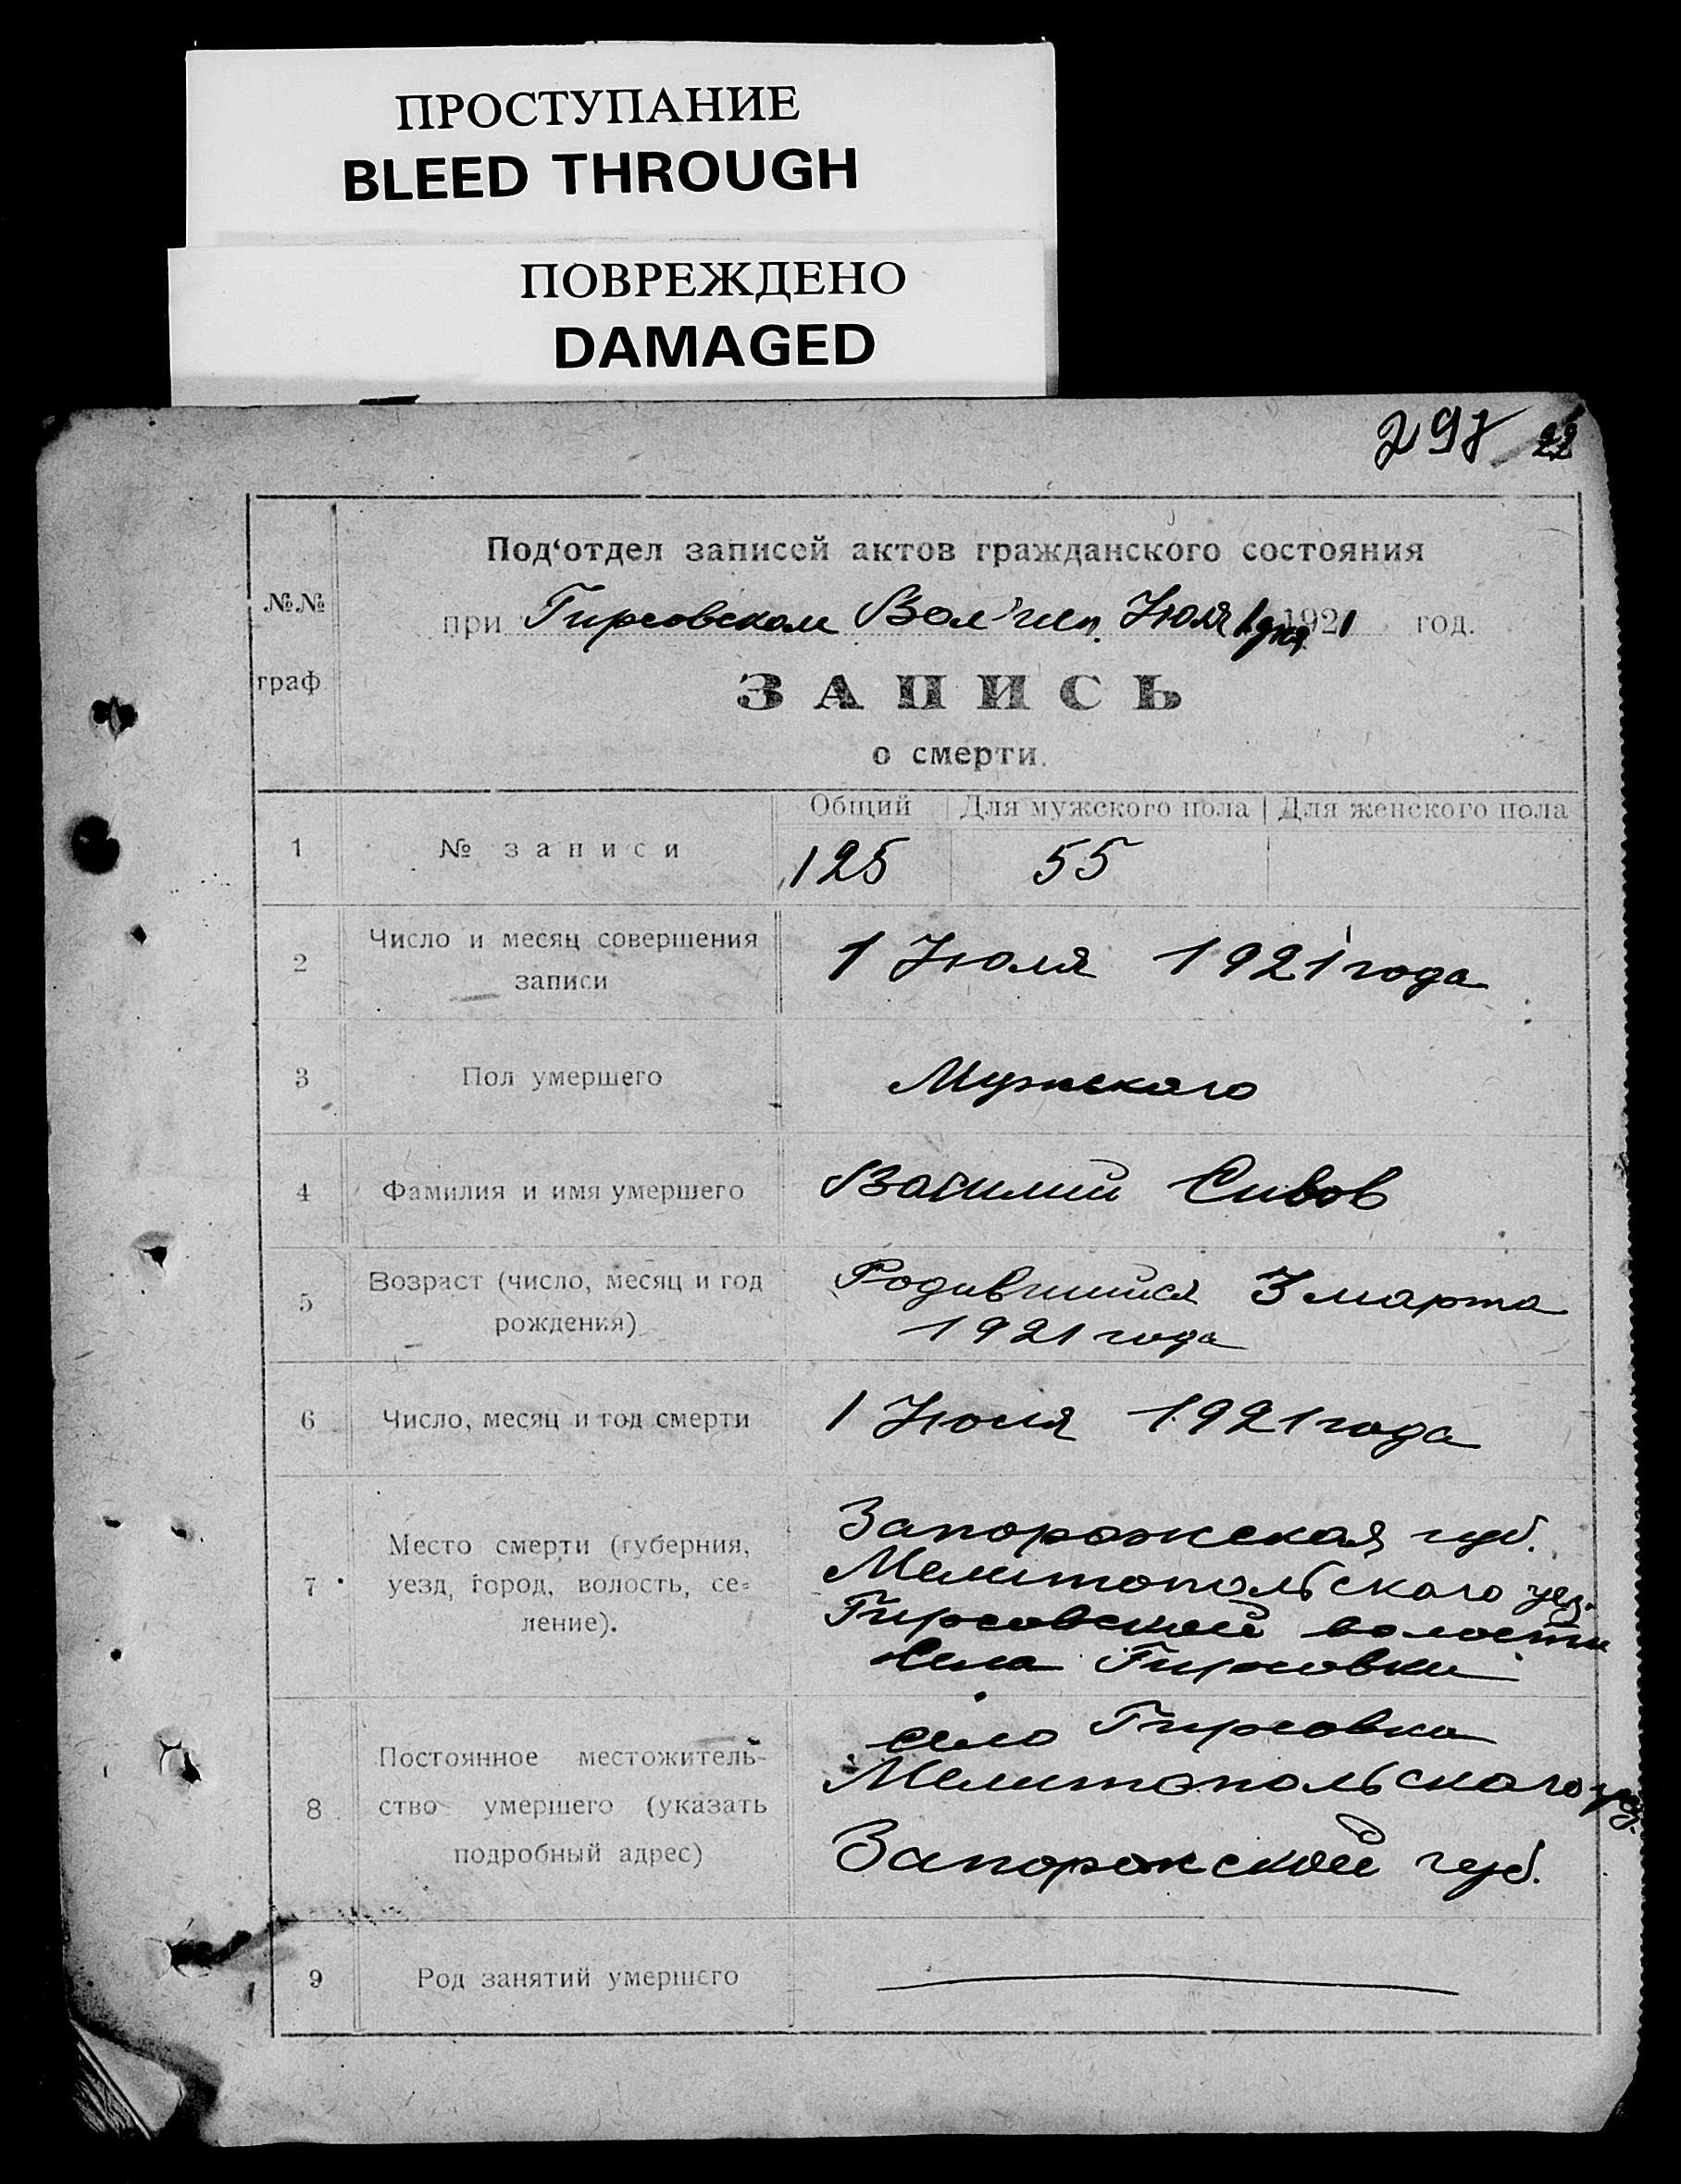 ПРОСТУПАНИЕ
BLEED THROUGH
ПОВРЕЖДЕНО
DAMAGED
297 22
№№ граф
Под‘отдел записей актов гражданского состояния
при Гирсовском Вол исп. Июля 1 дня 1921 год.
ЗАПИСЬ
о смерти.
Общий Для мужского пола Для женского пола
1 № записи 125 55
2 Число и месяц совершения
записи
1 Июля 1921 года
3 Пол умершего Мужского
4 Фамилия и имя умершего Василий Сивов
5 Возраст (число, месяц и год
рождения)
Родившийся 3 марта
1921 года
6 Число, месяц и год смерти 1 Июля 1921 года
7 Место смерти (губерния,
уезд, город, волость, се=
ление).
Запорожская губ.
Мелитопольского уез.
Гирсовской волости
Села Гирсовки
8 Постоянное местожитель-
ство умершего (указать
подробный адрес)
село Гирсовка
Мелитопольского уез.
Запорожской губ.
9 Род занятий умершего